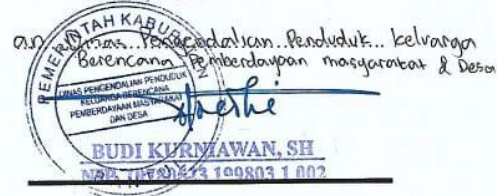 a.n Dinas Pengendalian Penduduk Keluarga
Berencana Pemberdayaan masyarakat & Desa
PEMERINTAH KABU
DINAS PENGENDALIAN PENDUDUK
KELUARGA BERENCANA
PEMBERDAYAAN MASYARAKAT
DAN DESA
BUDI KURNIAWAN, SH
199803 1 002